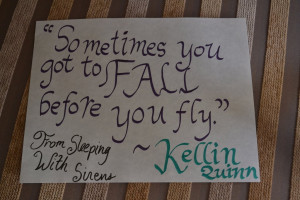 “Sometimes you
got to FALL
before you fly.”
~ Kellin
Quinn
From Sleeping
With Sirens